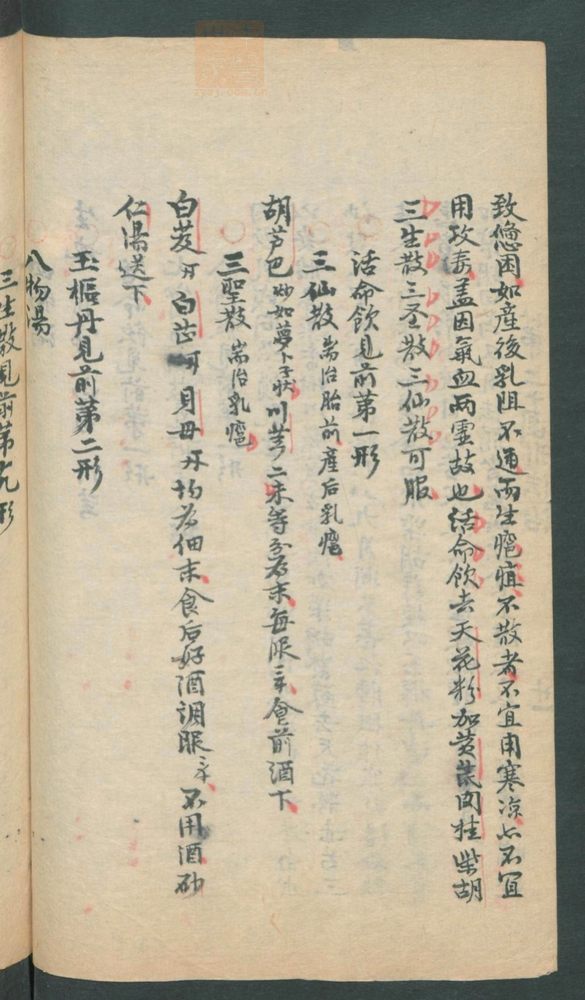 致慫因如產後乳阻不通而生癰疽不散者不宜用寒涼亦不宜
用攻毒盖因氣血兩虛故也活命飲去天花粉加黄芪肉桂柴胡
三生散三圣散三仙散可服
活命飲見前第一形
三仙散耑治胎前產后乳癰
胡芦巴炒如蔔子状川芎二味等分為末每服三錢食前酒下
三聖散耑治乳癰
白芨 白芷 貝母 均為細末食后好酒調服三錢不用酒砂
仁湯送下
玉樞丹見前第二形
八物湯
三生散見前第九形